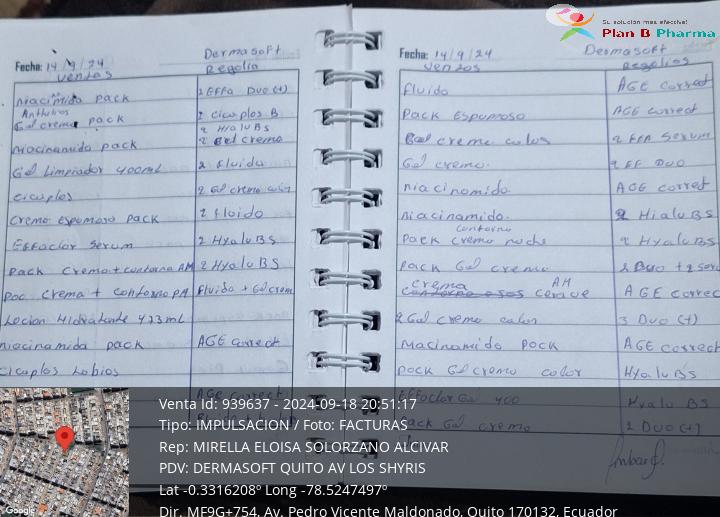 Su solución más efectiva!
Plan B Pharma
Fecha: 14/9/24 Dermasoft
Ventas Regalia
Niacimida pack 1 EFFa Duo (+)
Anthelios
Gel crema pack 2 cicaplos B
2 HialuBs
Niacinamida pack 2 Gel crema
Gel Limpiador 400ml 2 Fluido
cicaplos 2 Gel crema color
Crema espumosa pack 2 Fluido
Effaclor Serum 2 HyaluBS
Pack Crema + contorno AM 2 HyaluBS
Poc Crema + contorno PM Fluido + Gel crem
Locion Hidratante 473ml
Niacinamida pack AGE correct
Cicaplos Labios
AGE correct
Fecha: 14/9/24 Dermasoft
Ventas Regalias
Fluido AGE correct
Pack Espumoso AGE correct
Gel crema color 2 EFA Serum
Gel crema. 2 EF DUO
Niacinamida AGE correct
Niacinamida. 2 HialuBs
contorno
Pack crema noche 2 HyaluBS
Pack Gel crema
crema AM
AGE correc
2 Gel crema color 3 Duo (+)
Niacinamida Pock AGE correct
Pock Gel crema color HyaluBs
Effaclor Gel 400 Hyalu BS
Pack Gel crema 2 DUO (+)
Venta Id: 939637 - 2024-09-18 20:51:17
Tipo: IMPULSACION / Foto: FACTURAS
Rep: MIRELLA ELOISA SOLORZANO ALCIVAR
PDV: DERMASOFT QUITO AV LOS SHYRIS
Lat -0.3316208º Long -78.5247497º
Dir. MF9G+754, Av. Pedro Vicente Maldonado, Quito 170132, Ecuador
Google